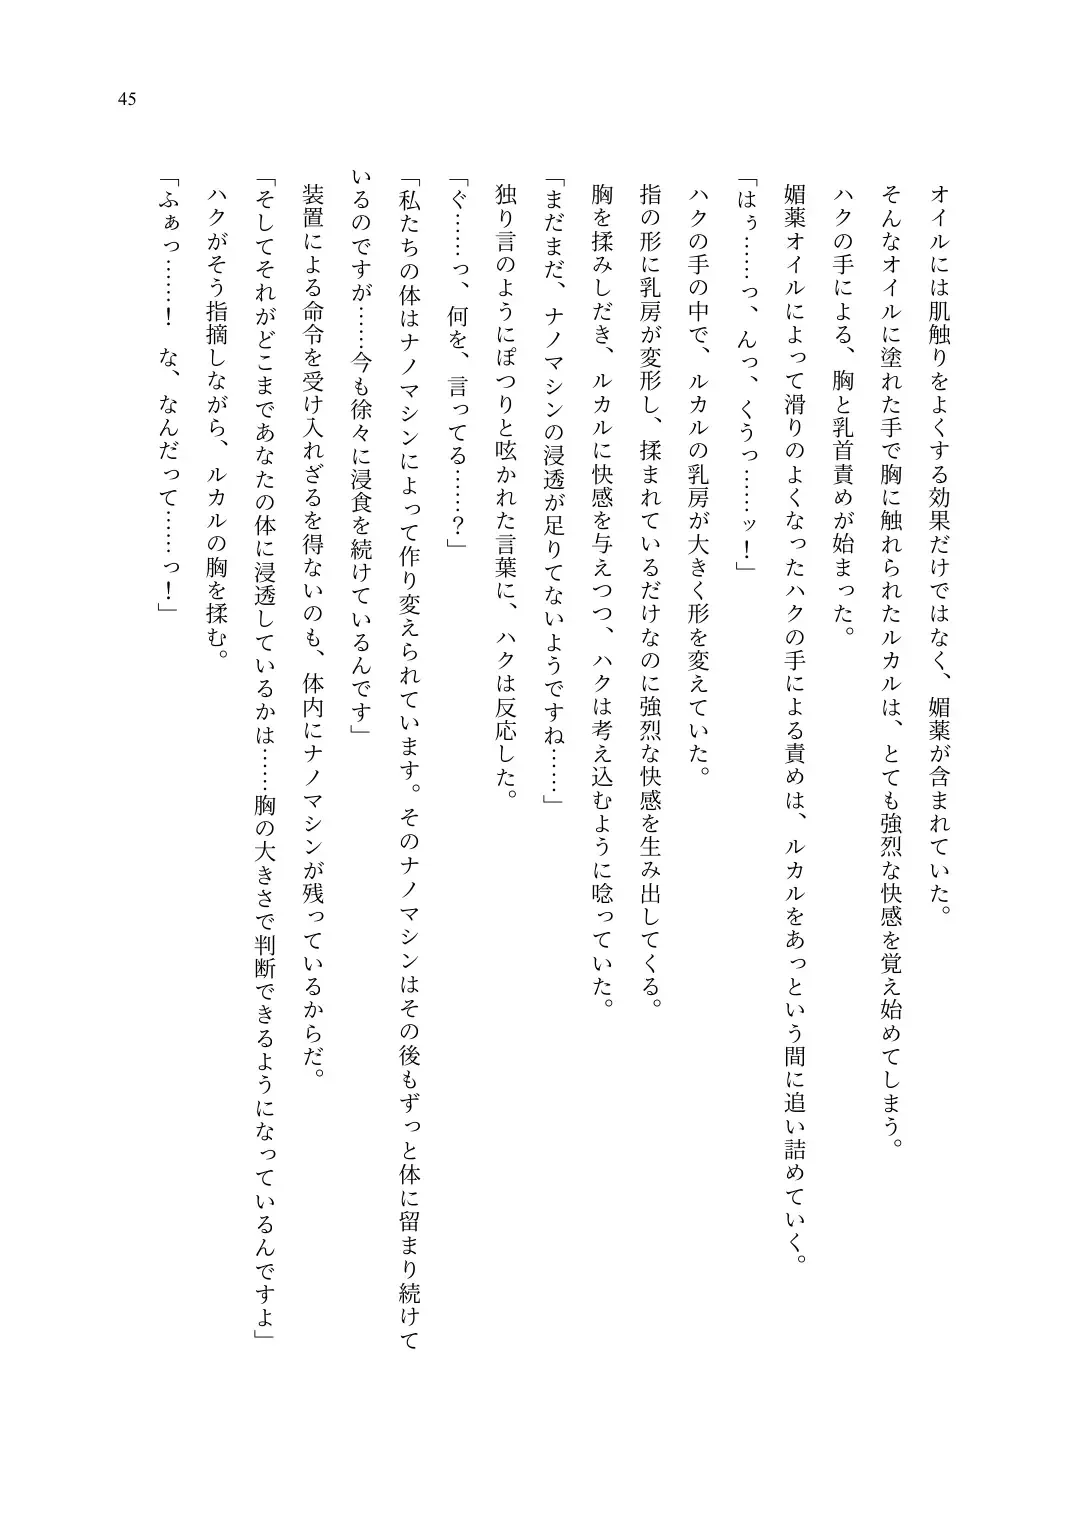 45
　オイルには肌触りをよくする効果だけではなく、媚薬が含まれていた。
　そんなオイルに塗れた手で胸に触れられたルカルは、とても強烈な快感を覚え始めてしまう。
　ハクの手による、胸と乳首責めが始まった。
　媚薬オイルによって滑りのよくなったハクの手による責めは、ルカルをあっという間に追い詰めていく。
「はぅ……っ、んっ、くうっ……ッ！」
　ハクの手の中で、ルカルの乳房が大きく形を変えていた。
　指の形に乳房が変形し、揉まれているだけなのに強烈な快感を生み出してくる。
　胸を揉みしだき、ルカルに快感を与えつつ、ハクは考え込むように唸っていた。
「まだまだ、ナノマシンの浸透が足りてないようですね……」
　独り言のようにぽつりと呟かれた言葉に、ハクは反応した。
「ぐ……っ、何を、言ってる……？」
「私たちの体はナノマシンによって作り変えられています。そのナノマシンはその後もずっと体に留まり続けて
いるのですが……今も徐々に浸食を続けているんです」
　装置による命令を受け入れざるを得ないのも、体内にナノマシンが残っているからだ。
「そしてそれがどこまであなたの体に浸透しているかは……胸の大きさで判断できるようになっているんですよ」
　ハクがそう指摘しながら、ルカルの胸を揉む。
「ふぁっ……！　な、なんだって……っ！」